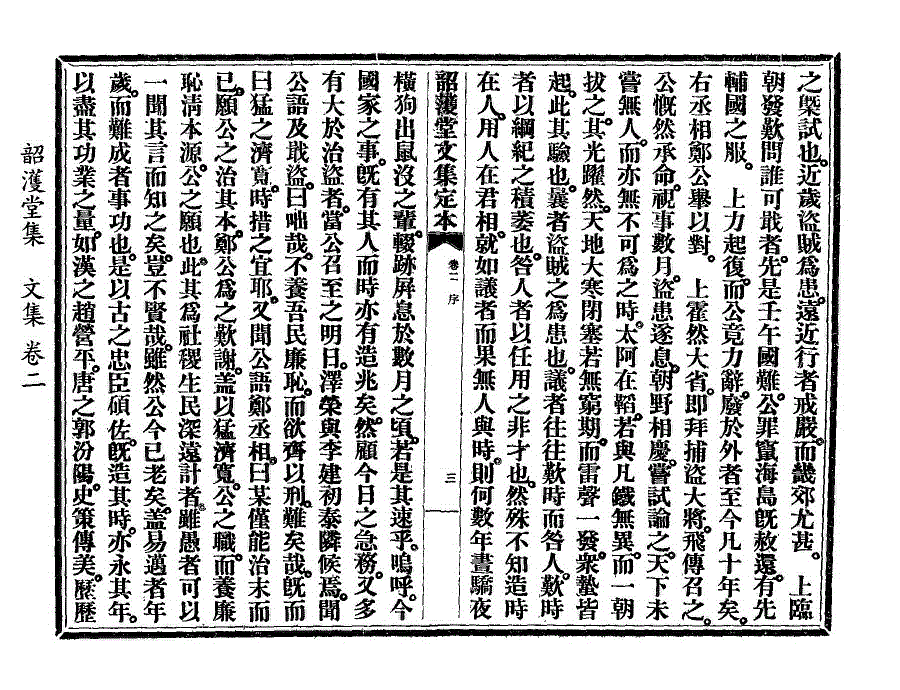 之槩試也。近歲盜賊爲患。遠近行者戒嚴。而畿郊尤甚。 上臨
朝發歎問誰可戢者。先是壬午國難。公罪竄海島旣赦還。有先
輔國之服。 上力起復。而公竟力辭。廢於外者至今凡十年矣。
右丞相鄭公擧以對。 上霍然大省。卽拜捕盜大將。飛傳召之。
公慨然承命。視事數月。盜患遂息。朝野相慶。嘗試論之。天下未
嘗無人。而亦無不可爲之時。太阿在韜。若與凡鐵無異。而一朝
拔之。其光躍然。天地大寒閉塞若無窮期。而雷聲一發。衆蟄皆
起。此其驗也。曩者盜賊之爲患也。議者往往歎時而咎人。歎時
者以綱紀之積萎也。咎人者以任用之非才也。然殊不知造時
在人。用人在君相。就如議者而果無人與時。則何數年晝驕夜
韶濩堂文集定本 卷二 序 三
橫狗出鼠沒之輩。輟跡屛息於數月之頃。若是其速乎。嗚呼。今
國家之事。旣有其人而時亦有造兆矣。然顧今日之急務。又多
有大於治盜者。當公召至之明日。澤榮與李建初泰隣候焉。聞
公語及戢盜。曰咄哉。不養吾民廉恥。而欲齊以刑。難矣哉。旣而
曰猛之濟寬。時措之宜耶。又聞公語鄭丞相。曰某僅能治末而
已。願公之治其本。鄭公爲之歎謝。盖以猛濟寬。公之職。而養廉
恥淸本源。公之願也。此其爲社稷生民深遠計者。雖愚者可以
一聞其言而知之矣。豈不賢哉。雖然公今已老矣。盖易邁者年
歲。而難成者事功也。是以古之忠臣碩佐。旣造其時。亦永其年。
以盡其功業之量。如漢之趙營平。唐之郭汾陽。史策傳美。歷歷
韶濩堂集 文集 卷二